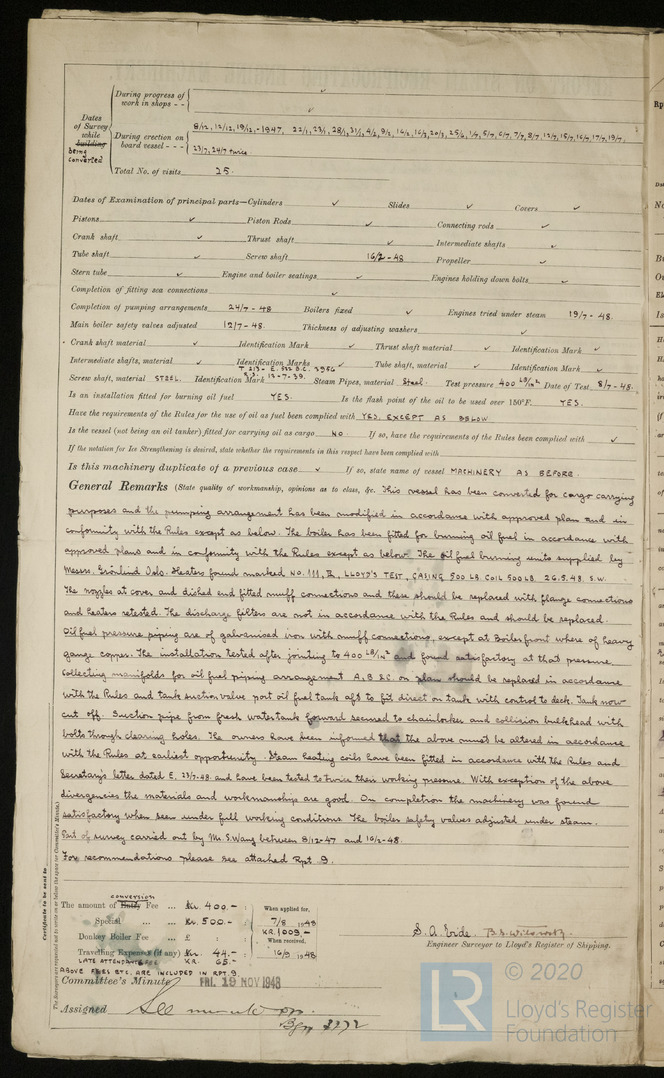 During progress of
work in shops - -
Dates
of Survey
while
building
being
converted
During erection on
board vessel - - -
8/12, 12/12, 19/12,-1947. 22/1, 23/1, 28/1, 31/1, 4/2, 9/2, 16/2, 16/3, 20/3, 25/6, 1/7, 5/7, 6/7, 7/7, 8/7, 12/7, 15/7, 16/7, 17/7, 19/7,
23/7, 24/7 twice
Total No. of visits 25.
Dates of Examination of principal parts—Cylinders ✓ Slides ✓ Covers ✓
Pistons ✓ Piston Rods ✓ Connecting rods ✓
Crank shaft ✓ Thrust shaft ✓ Intermediate shafts ✓
Tube shaft ✓ Screw shaft 16/2-48 Propeller ✓
Stern tube ✓ Engine and boiler seatings ✓ Engines holding down bolts ✓
Completion of fitting sea connections ✓
Completion of pumping arrangements 24/7-48 Boilers fixed ✓ Engines tried under steam 19/7-48.
Main boiler safety valves adjusted 12/7-48. Thickness of adjusting washers ✓
Crank shaft material ✓ Identification Mark ✓ Thrust shaft material ✓ Identification Mark ✓
Intermediate shafts, material ✓ Identification Marks ✓ Tube shaft, material ✓ Identification Mark ✓
Screw shaft, material STEEL. Identification Mark 12-7-39. Steam Pipes, material Steel. Test pressure 400 LB/IN² Date of Test 8/7-48.
Is an installation fitted for burning oil fuel YES. Is the flash point of the oil to be used over 150°F. YES.
Have the requirements of the Rules for the use of oil as fuel been complied with YES, EXCEPT AS BELOW
Is the vessel (not being an oil tanker) fitted for carrying oil as cargo NO If so, have the requirements of the Rules been complied with ✓
If the notation for Ice Strengthening is desired, state whether the requirements in this respect have been complied with
Is this machinery duplicate of a previous case ✓ If so, state name of vessel MACHINERY AS BEFORE.
General Remarks (State quality of workmanship, opinions as to class, &c. This vessel has been converted for cargo carrying
purposes and the pumping arrangement has been modified in accordance with approved plan and in
conformity with the Rules except as below. The boiler has been fitted for burning oil fuel in accordance with
approved plans and in conformity with the Rules except as below. The oil fuel burning units supplied by
Messrs. Grönlund Oslo. Heaters found marked NO. 111, LLOYD'S TEST, CASING 500 LB COIL 500 LB 26.5.48. S.W.
The nozzles at cover and dished end fitted muff connections and these should be replaced with flange connections
and heaters retested. The discharge filters are not in accordance with the Rules and should be replaced.
Oil fuel pressure piping are of galvanised iron with muff connections, except at Boiler front where of heavy
gauge copper. The installation tested after jointing to 400 LB/IN² and found satisfactory at that pressure.
Collecting manifolds for oil fuel piping arrangement A, B & C. on plan should be replaced in accordance
with the Rules and tank suction valve port oil fuel tank aft to fit direct on tank with control to deck. Tank now
cut off. Suction pipe from fresh water tank forward secured to chainlocker and collision bulkhead with
bolts through clearing holes. The owners have been informed that the above must be altered in accordance
with the Rules at earliest opportunity. Steam heating coils have been fitted in accordance with the Rules and
Secretary's letter dated E. 23/7-48 and have been tested to twice their working pressure. With exception of the above
divergencies the materials and workmanship are good. On completion the machinery was found
satisfactory when seen under full working conditions. The boiler safety valves adjusted under steam.
Part of survey carried out by Mr. S. Wang between 8/12-47 and 16/2-48.
For recommendations please see attached Rpt 9.
Certificate to be sent to
The amount of Entry conversion Fee ... Kr. 400.-
Special ... ... Kr. 500.-
Donkey Boiler Fee ... £ :
Travelling Expenses (if any) Kr. 44.-
LATE ATTENDANCE FEE KR. 65.-
ABOVE FEES ETC. ARE INCLUDED IN RPT. 9
When applied for,
7/8 1948
KR. 1009.-
When received,
16/9 1948
S. A. Eide.
Engineer Surveyor to Lloyd's Register of Shipping.
Committee's Minute FRI. 19 NOV 1948
Assigned See minute on
© 2020
Lloyd's Register
Foundation
LR